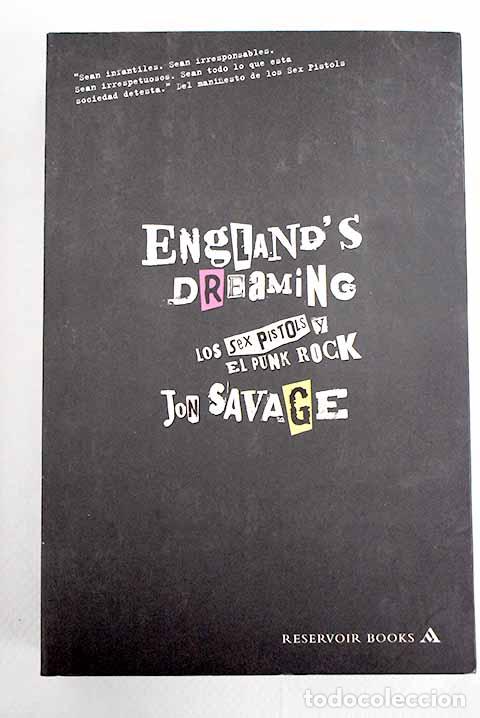 "Sean infantiles. Sean irresponsables.
Sean irrespetuosos. Sean todo lo que esta
sociedad detesta." Del manifiesto de los Sex Pistols
ENGLAND'S
DREAMING
LOS SEX PISTOLS Y
EL PUNK ROCK
JON SAVAGE
RESERVOIR BOOKS
todocoleccion